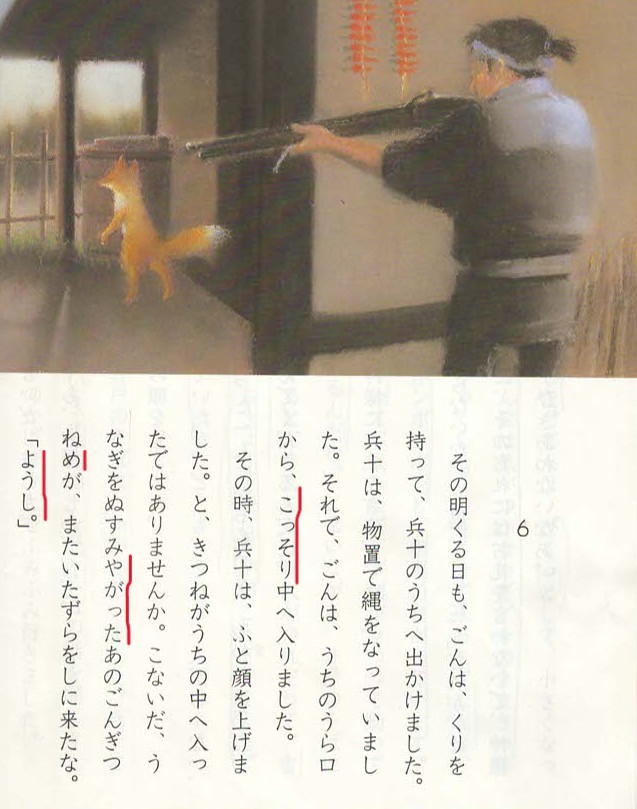 6
その明くる日も、ごんは、くりを
持って、兵十のうちへ出かけました。
兵十は、物置で縄をなっていまし
た。それで、ごんは、うちのうら口
から、こっそり中へ入りました。
その時、兵十は、ふと顔を上げま
した。と、きつねがうちの中へ入っ
たではありませんか。こないだ、う
なぎをぬすみやがったあのごんぎつ
ねめが、またいたずらをしに来たな。
「ようし。」